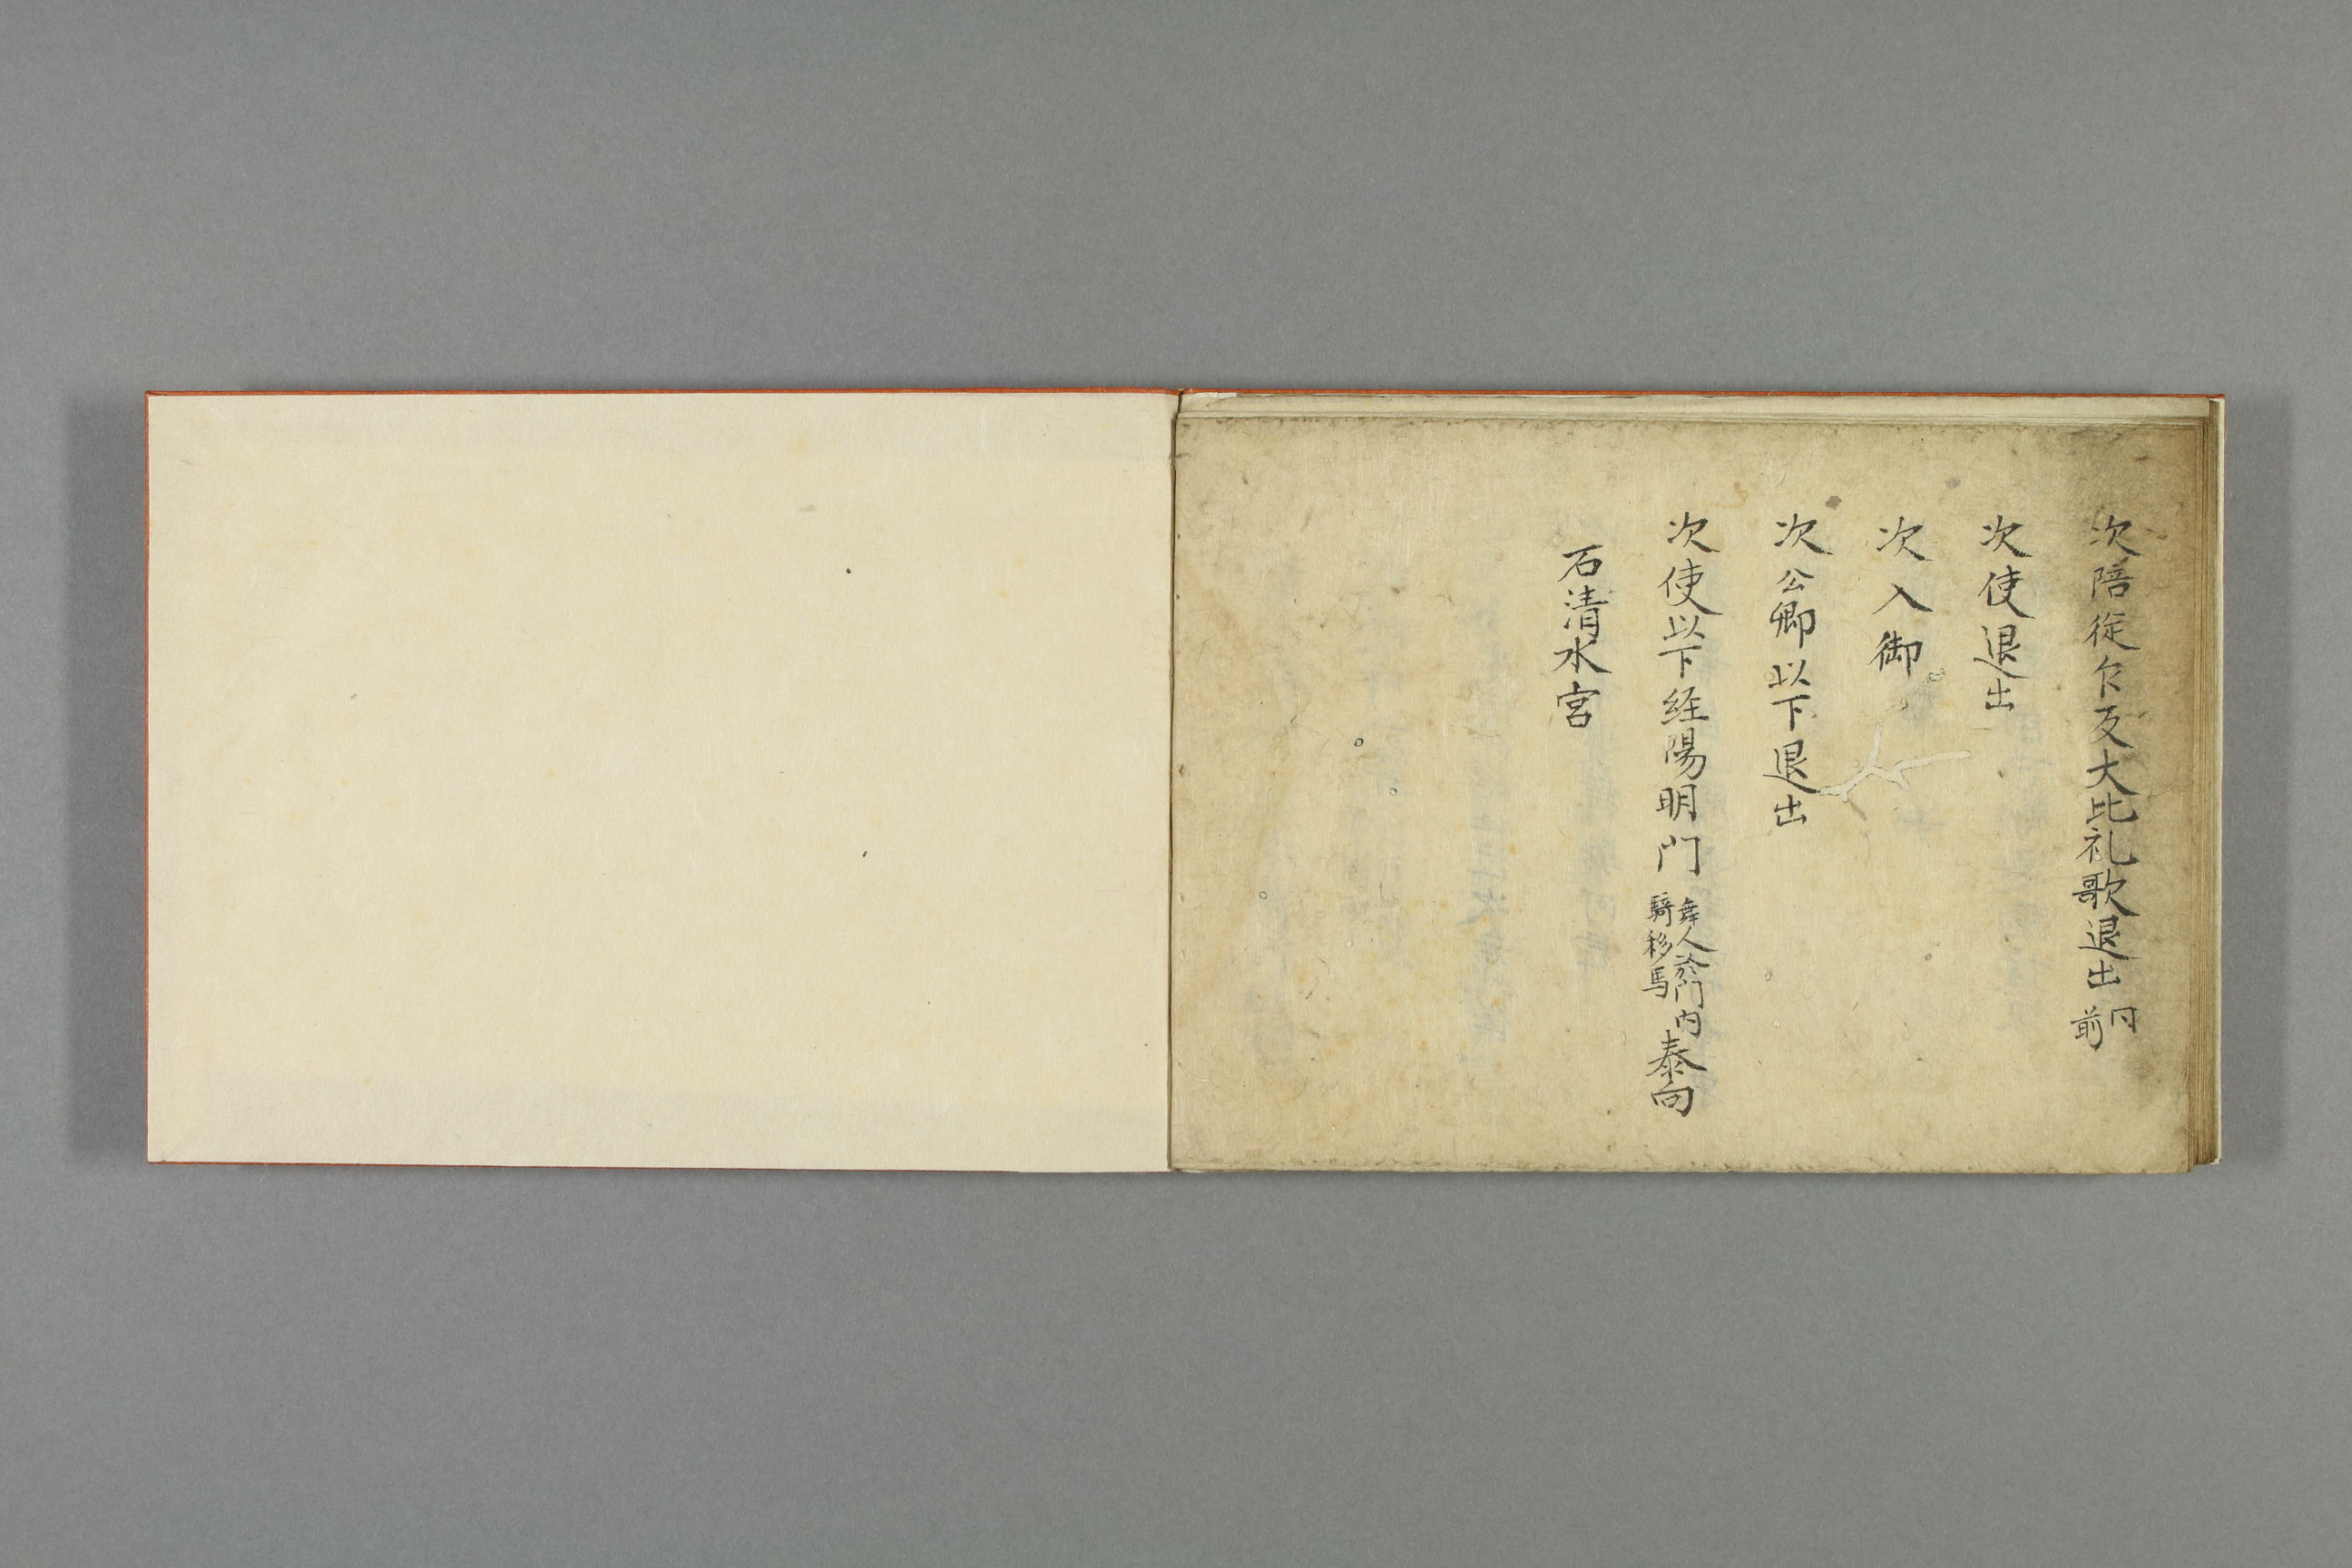 次陪従乍反大比礼歌退出同前
次使退出
次入御
次公卿以下退出
次使以下経陽明門舞人於門内騎移馬参向
石清水宮